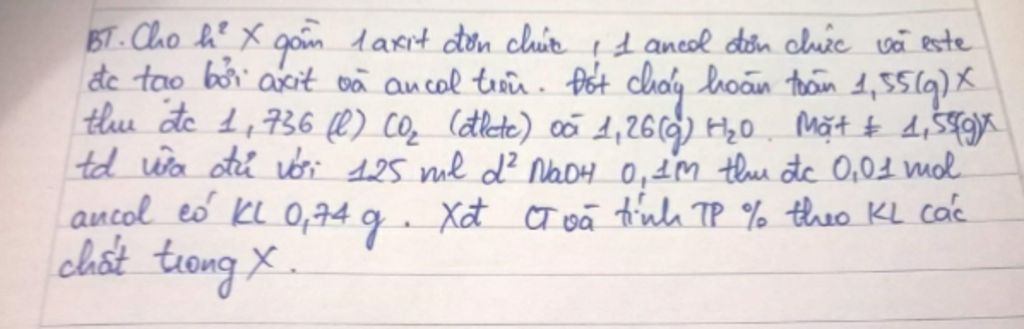 BT. Cho h² X gồm 1 axit đơn chức, 1 ancol đơn chức và este
đc tạo bởi axit và ancol trên. Đốt cháy hoàn toàn 1,55(g) X
thu đc 1,736 (l) CO₂ (đktc) và 1,26(g) H₂O. Mặt ≠ 1,55(g)X
td vừa đủ với 125 ml d² NaOH 0,1M thu đc 0,01 mol
ancol có KL 0,74 g. Xđ CT và tính TP % theo KL các
chất trong X.